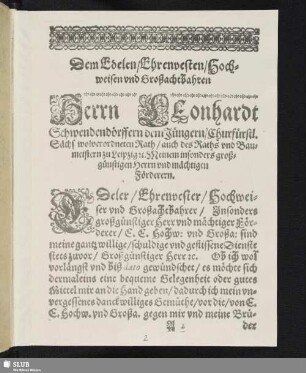 Dem Edelen/Ehrenvesten/Hoch-
weisen und Großachtbahren
Herrn Leonhardt
Schwendendörffern dem Jüngern/Churfürstl.
Sächs wolverordneten Rath/auch des Raths und Bau-
meistern zu Leipzig ꝛc. Meinem insonders groß-
günstigen Herrn und mächtigen
Förderern.
Edeler/Ehrenvester/Hochwei-
ser und Großachtbahrer/Insonders
großgünstiger Herr und mächtiger För-
derer/E. E. Hochw: und Großa: sind
meine gantz willige/schuldige und geflissene Dienste
stets zuvor/Großgünstiger Herr ꝛc. Ob ich wol
vorlängst und biß dato gewündschet/es möchte sich
dermaleins eine bequeme Gelegenheit oder gutes
Mittel mir an die Hand geben/dadurch ich mein un-
vergessenes danckwilliges Gemüthe/vor die/von E.
E. Hochw. und Großa. gegen mir und meine Brü-
der
2
SLUB